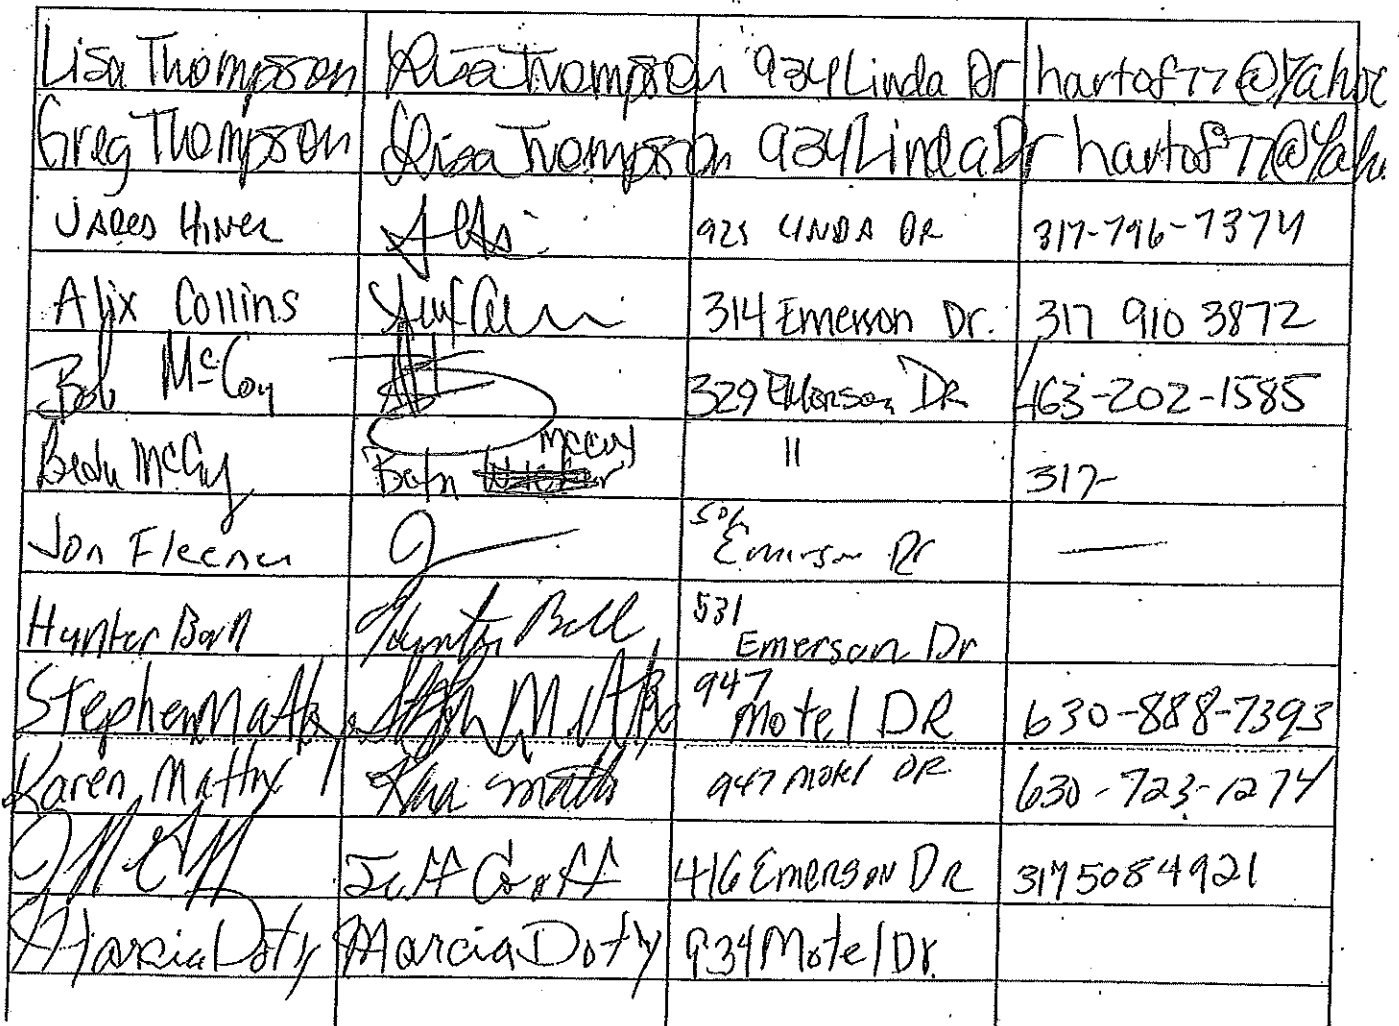 Lisa Thompson Lisa Thompson 934 Linda Dr hartof77@Yahoo
Greg Thompson Lisa Thompson 934 Linda Dr hartof77@Yaho
JARED HINER 925 LINDA DR 317-796-7374
Alix Collins 314 Emerson Dr. 317 910 3872
Bob McCoy 329 Emerson DR 463-202-1585
Beth McCoy Beth McCoy " 317-
Jon Fleener 506 Emerson Dr —
Hunter Ball Hunter Ball 531 Emerson Dr
Stephen 947 Motel DR 630-888-7393
Karen 947 Motel DR 630-723-1274
Jeff 416 Emerson DR 317 508 4921
Marcia Doty Marcia Doty 934 Motel Dr.